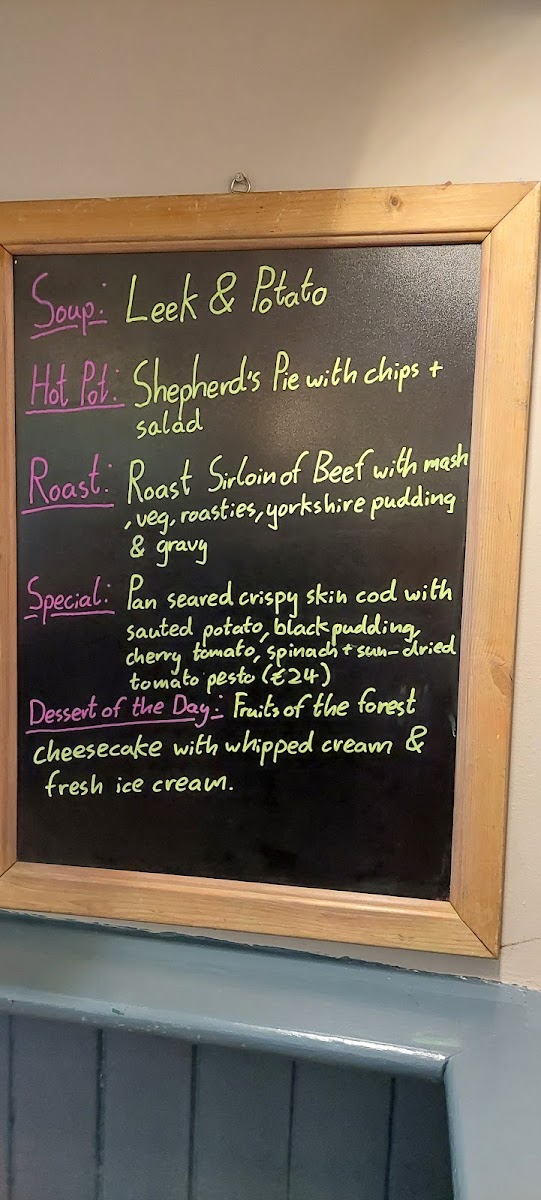 Soup: Leek & Potato
Hot Pot: Shepherd's Pie with chips +
salad
Roast: Roast Sirloin of Beef with mash
, veg, roasties, yorkshire pudding
& gravy
Special: Pan seared crispy skin cod with
sauted potato, black pudding,
cherry tomato, spinach + sun-dried
tomato pesto (€24)
Dessert of the Day: Fruits of the forest
cheesecake with whipped cream &
fresh ice cream.